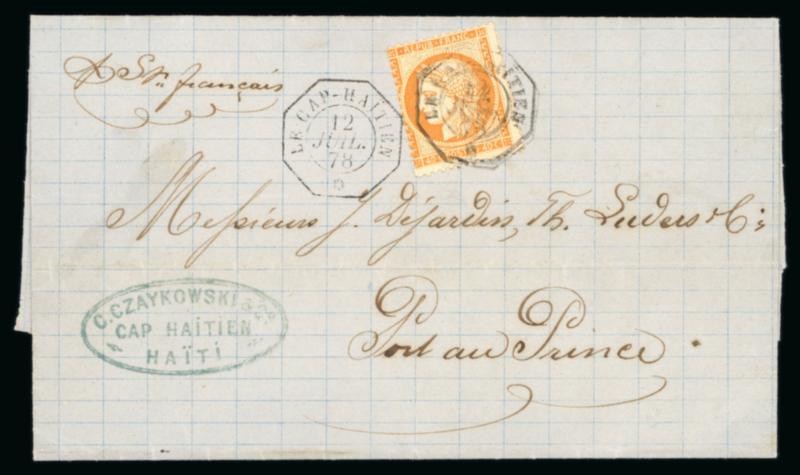 p Str français
LE CAP-HAÏTIEN
12
JUIL.
78
REPUB. FRANC.
40 C POSTES 40 C
Messieurs J. Déjardin, Th. Luders & Cie
Port au Prince
C. CZAYKOWSKI & Co.
CAP HAÏTIEN
HAÏTI